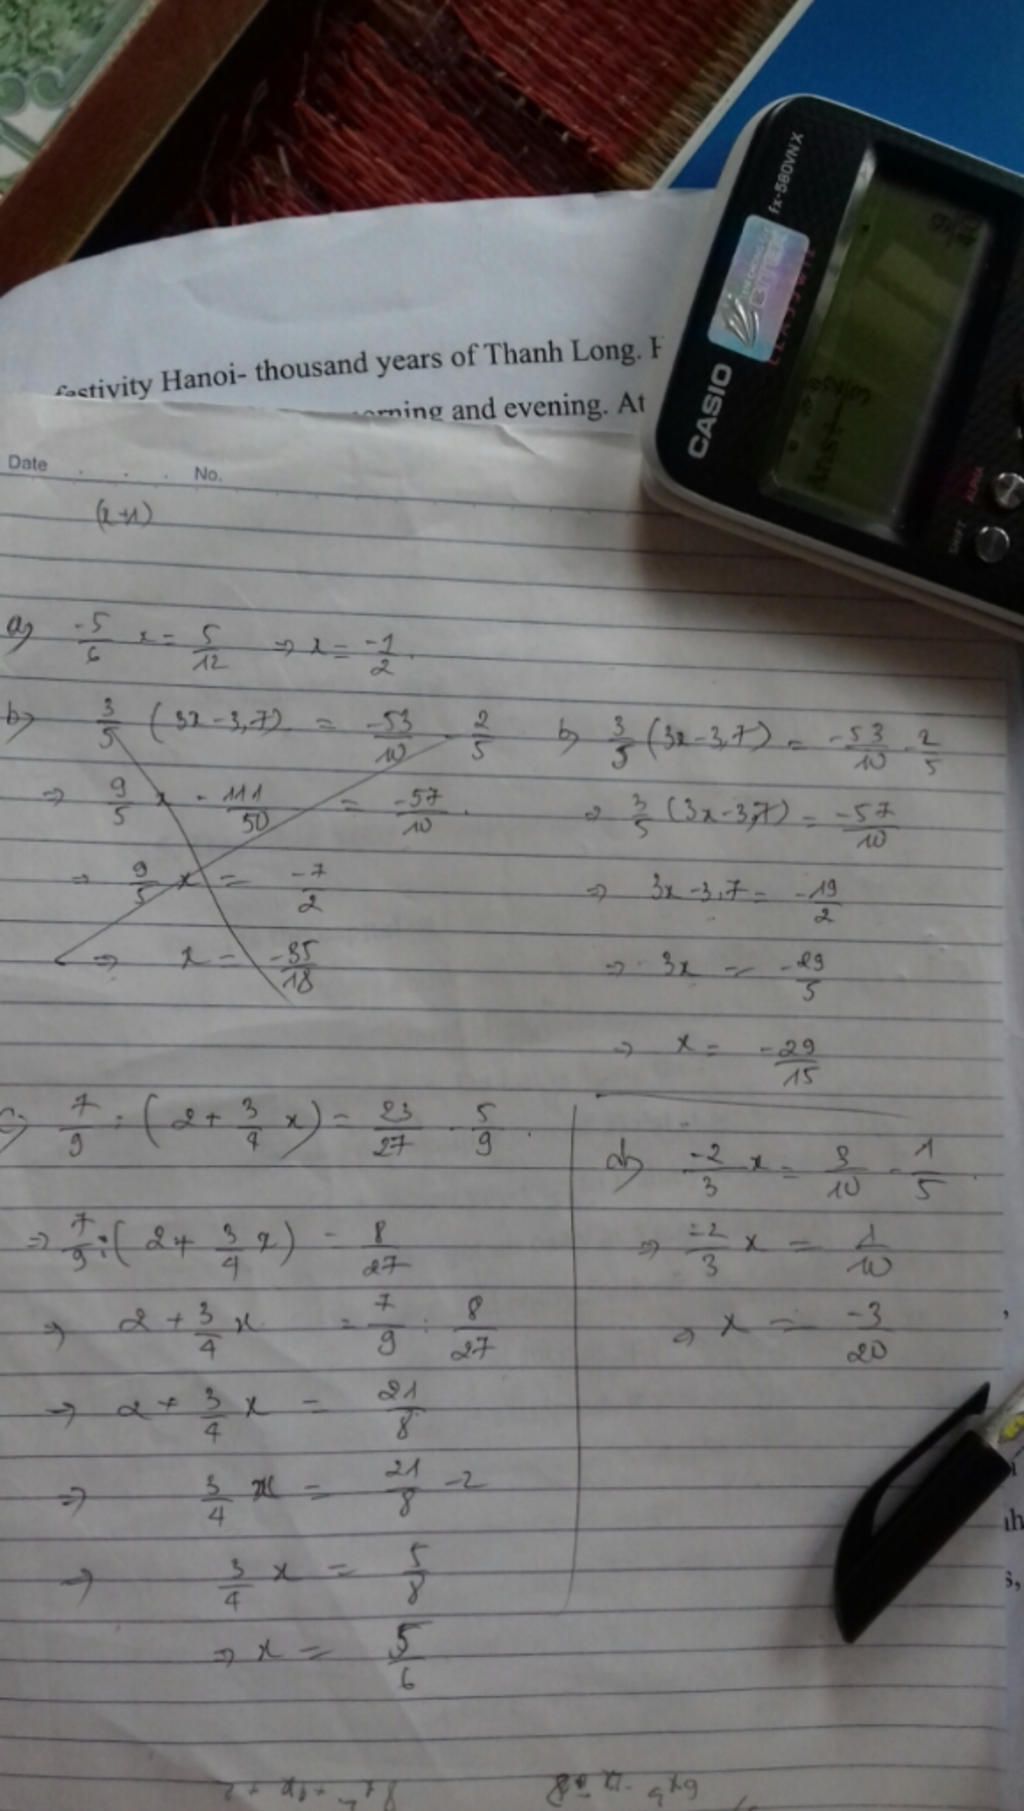 fx-580VNX
CLASSWIZ
CASIO
SHIFT ALPHA
festivity Hanoi- thousand years of Thanh Long.
morning and evening. At
Date . . . No.
(x+1)
a) -5/6 x = 5/12 => x = -1/2.
b) 3/5 (3x-3,7) = -53/10 - 2/5
=> 9/5 x - 111/50 = -57/10.
=> 9/5 x = -7/2
=> x = -35/18
b) 3/5 (3x-3,7) = -53/10 - 2/5
=> 3/5 (3x-3,7) = -57/10
=> 3x-3,7 = -19/2
=> 3x = -29/5
=> x = -29/15
c) 7/9 : (2 + 3/4 x) = 23/27 - 5/9.
=> 7/9 : (2 + 3/4 x) = 8/27
=> 2 + 3/4 x = 7/9 : 8/27
=> 2 + 3/4 x = 21/8
=> 3/4 x = 21/8 - 2
=> 3/4 x = 5/8
=> x = 5/6
d) -2/3 x = 3/10 - 1/5.
=> -2/3 x = 1/10
=> x = -3/20